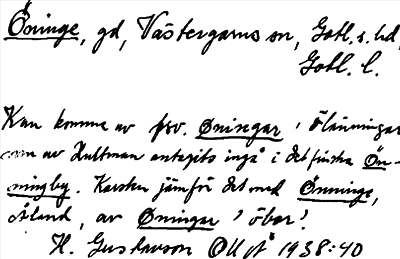 Öninge, gd, Västergarns sn, Gotl. s. hd,
Gotl. l.
Kan komma av fsv. Öningar 'ölänningar
som av Hultman antagits ingå i det finska Ön-
ningby. Karsten jämför det med Önninge,
Åland, av Öningar 'öbor'.
H. Gustavson 1938:40